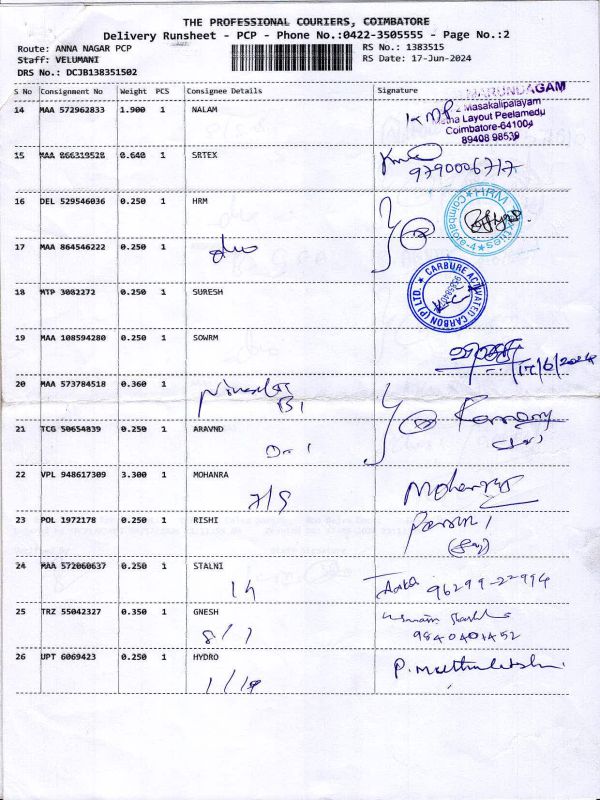 THE PROFESSIONAL COURIERS, COIMBATORE
Delivery Runsheet - PCP - Phone No.:0422-3505555 - Page No.:2
Route: ANNA NAGAR PCP
RS No.: 1383515
Staff: VELUMANI
RS Date: 17-Jun-2024
DRS No.: DCJB138351502
S No Consignment No Weight PCS Consignee Details Signature
14 MAA 572962833 1.900 1 NALAM
MARUNDAGAM
Masakalipalayam
Layout Peelamedu
Coimbatore-641004
89408 98539
15 MAA 866319528 0.640 1 SRTEX
9790006717
16 DEL 529546036 0.250 1 HRM
HRM Textiles
Coimbatore-4
17 MAA 864546222 0.250 1
18 MTP 3082272 0.250 1 SURESH
CARBURE ACTIVATED CARBON (P) LTD.
19 MAA 108594280 0.250 1 SOWRM
17/6/2024
20 MAA 573784518 0.360 1
B1
21 TCG 50654839 0.250 1 ARAVND
22 VPL 948617309 3.300 1 MOHANRA
7/9
23 POL 1972178 0.250 1 RISHI
24 MAA 572060637 0.250 1 STALNI
96299-22994
25 TRZ 55042327 0.350 1 GNESH
8/7
9840401452
26 UPT 6069423 0.250 1 HYDRO
P. Muthulakshmi